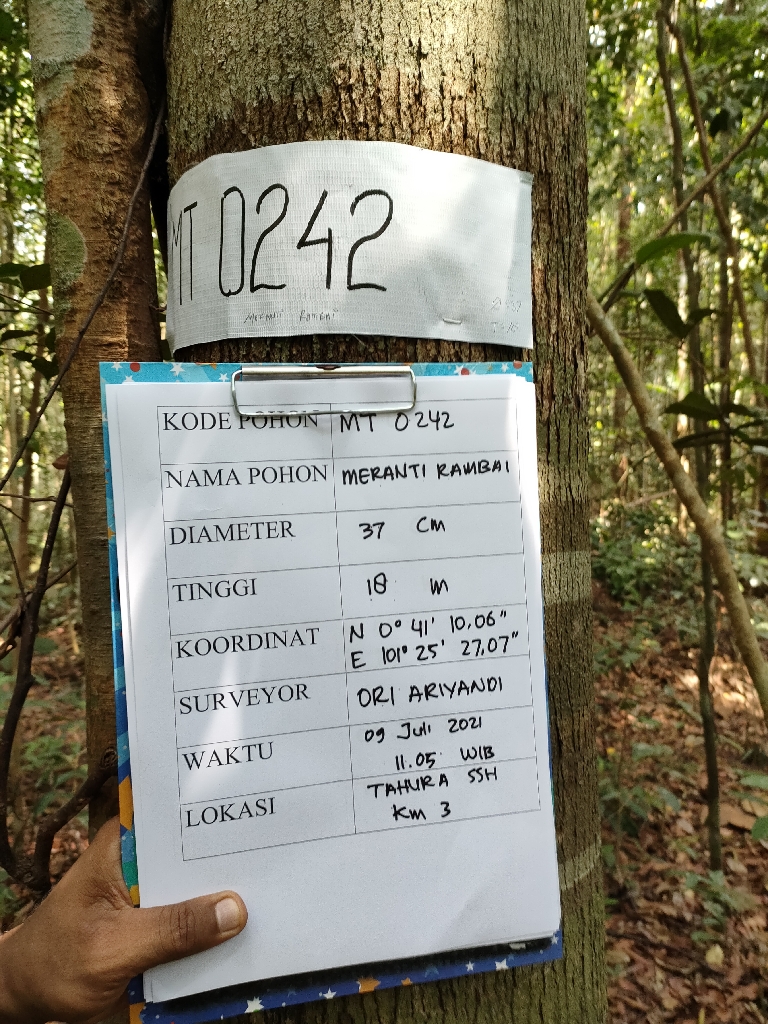 MT 0242
MERANTI RAMBAI
KODE POHON MT 0242
NAMA POHON MERANTI RAMBAI
DIAMETER 37 Cm
TINGGI 18 m
KOORDINAT N 0° 41' 10,06"
E 101° 25' 27,07"
SURVEYOR ORI ARIYANDI
WAKTU 09 Juli 2021
11.05 WIB
LOKASI TAHURA SSH
Km 3